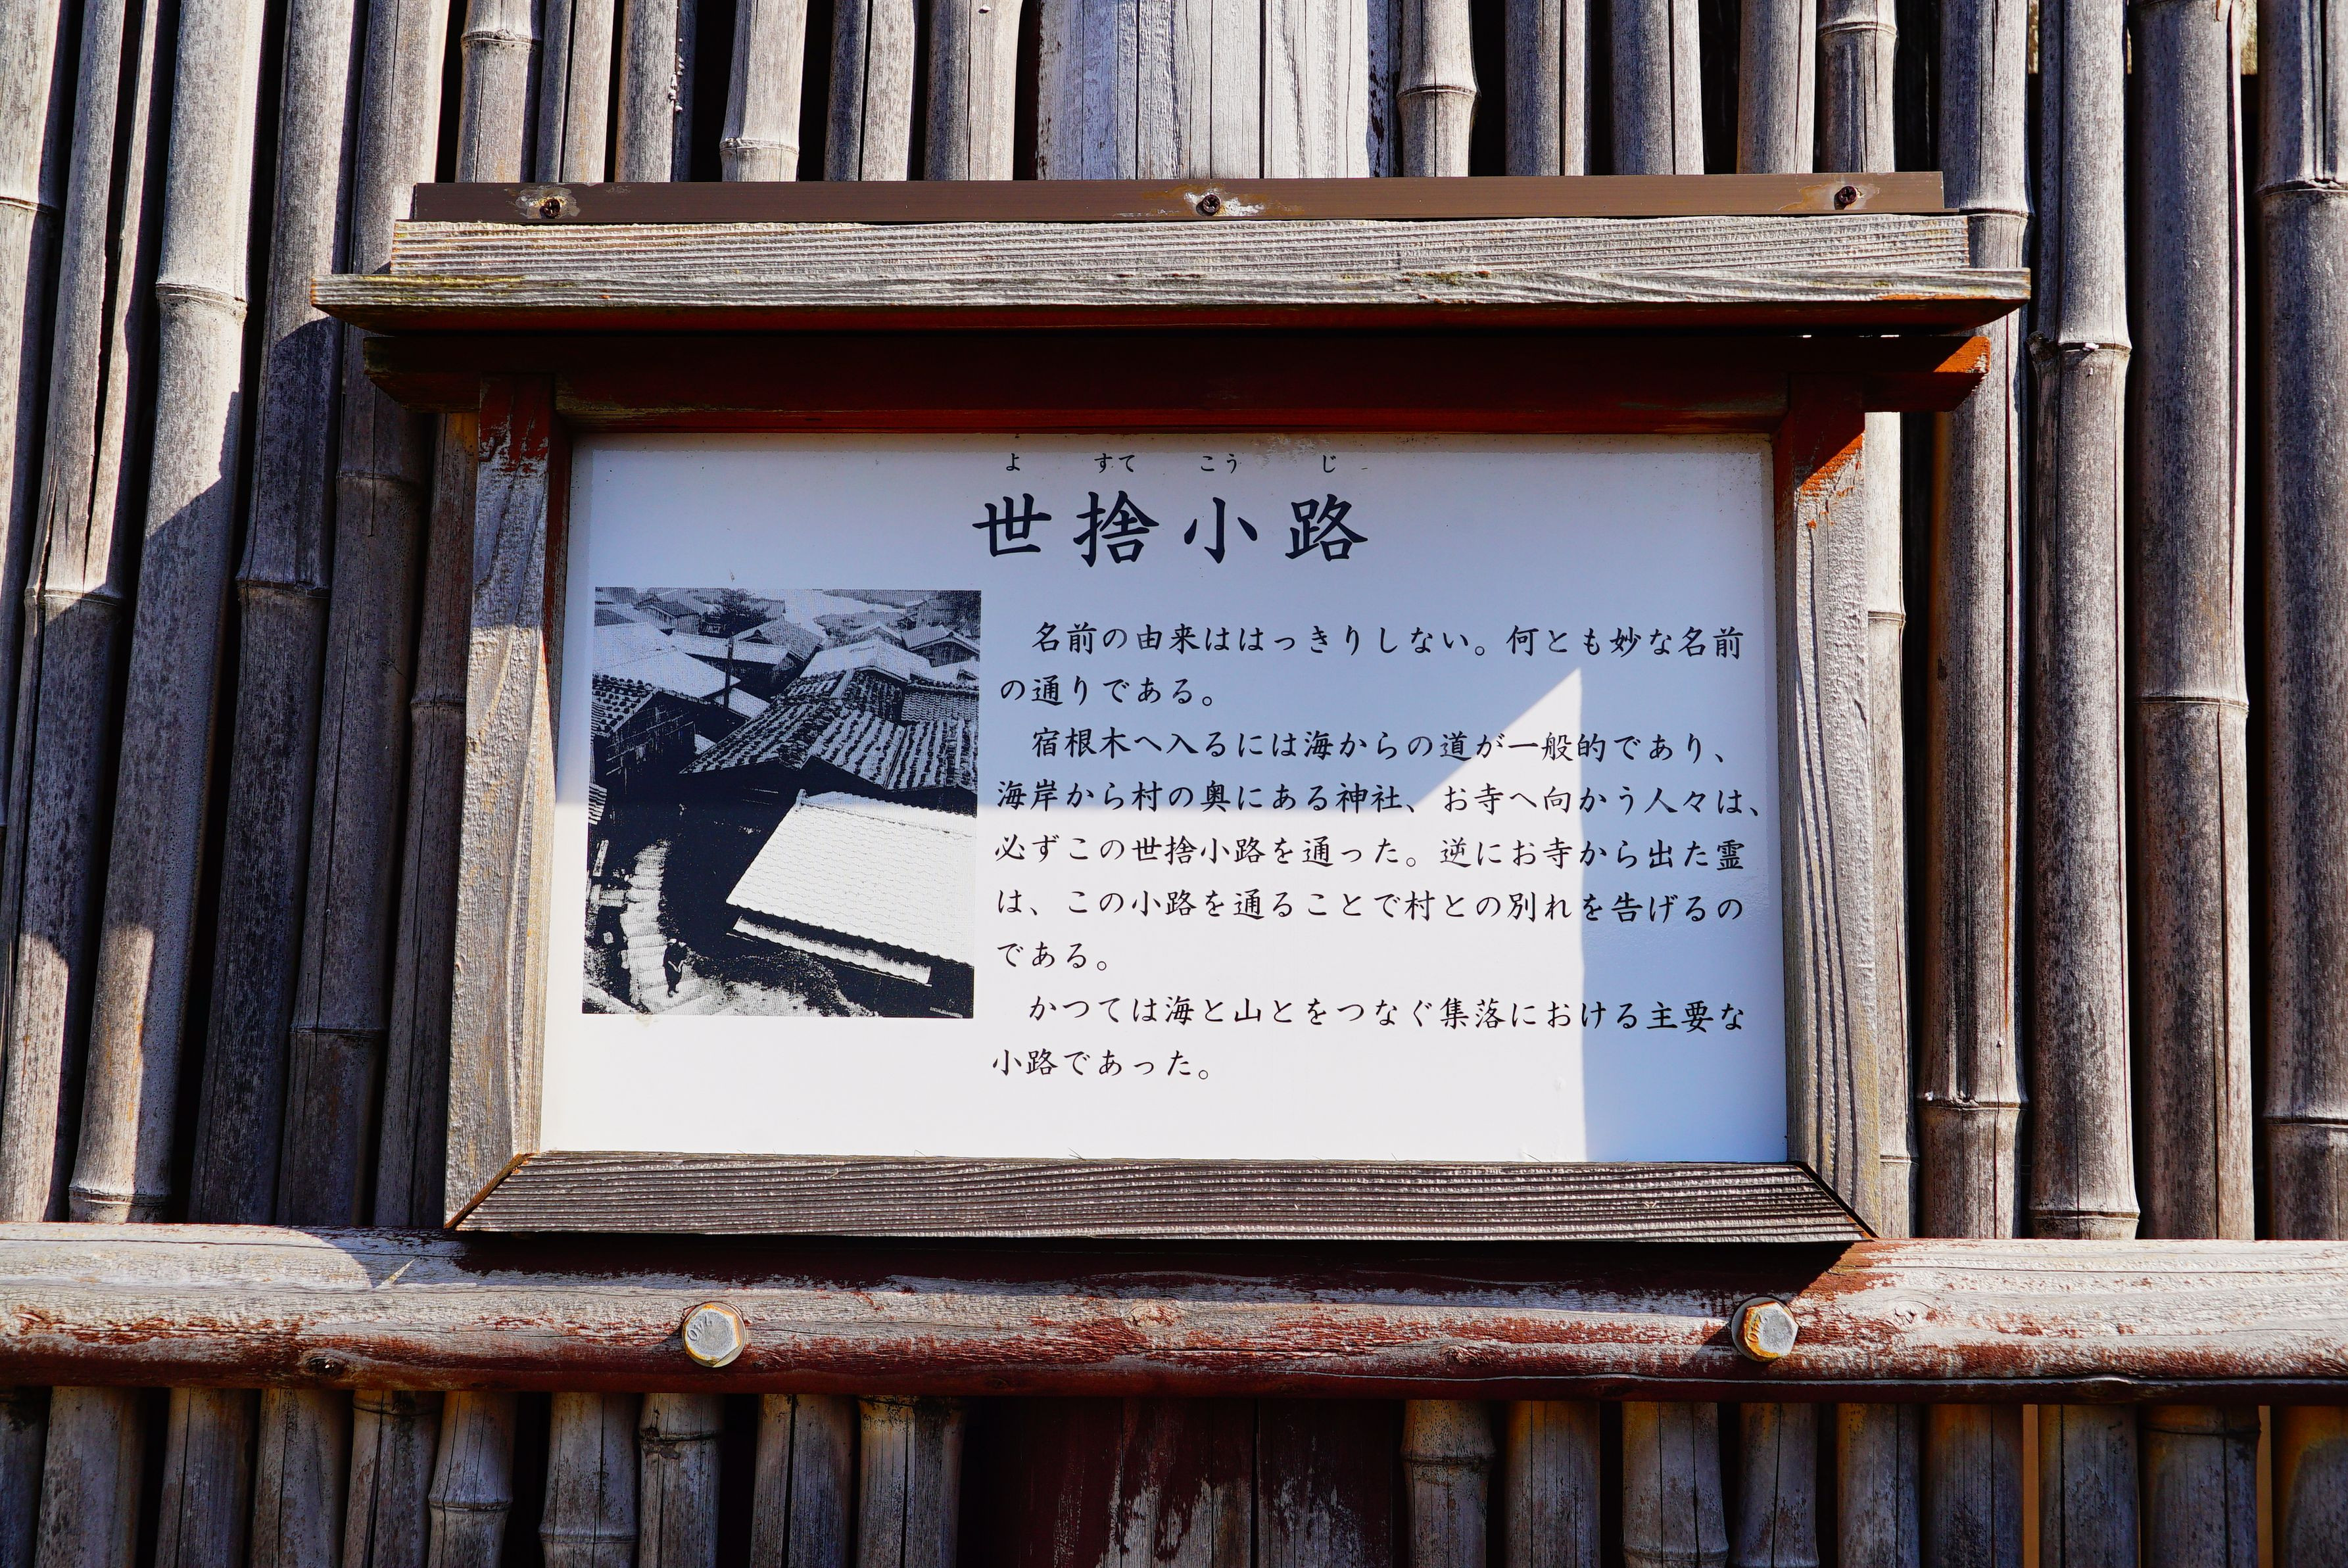 よ すて こう じ
世捨小路
名前の由来ははっきりしない。何とも妙な名前
の通りである。
宿根木へ入るには海からの道が一般的であり、
海岸から村の奥にある神社、お寺へ向かう人々は、
必ずこの世捨小路を通った。逆にお寺から出た霊
は、この小路を通ることで村との別れを告げるの
である。
かつては海と山とをつなぐ集落における主要な
小路であった。